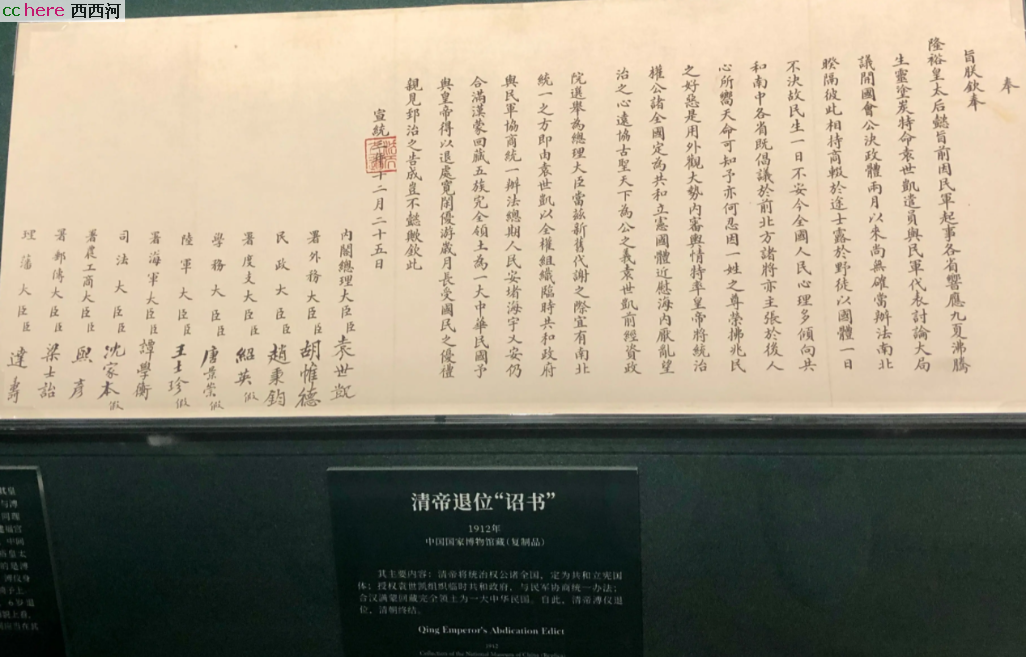 cchere 西西河
奉
旨朕欽奉
隆裕皇太后懿旨前因民軍起事各省響應九夏沸騰
生靈塗炭特命袁世凱遣員與民軍代表討論大局
議開國會公決政體兩月以來尚無確當辦法南北
睽隔彼此相持商輟於途士露於野徒以國體一日
不決故民生一日不安今全國人民心理多傾向共
和南中各省既倡議於前北方諸將亦主張於後人
心所嚮天命可知予亦何忍因一姓之尊榮拂兆民
之好惡是用外觀大勢內審輿情特率皇帝將統治
權公諸全國定為共和立憲國體近慰海內厭亂望
治之心遠協古聖天下為公之義袁世凱前經資政
院選舉為總理大臣當茲新舊代謝之際宜有南北
統一之方即由袁世凱以全權組織臨時共和政府
與民軍協商統一辦法總期人民安堵海宇乂安仍
合滿漢蒙回藏五族完全領土為一大中華民國予
與皇帝得以退處寬閑優游歲月長受國民之優禮
親見郅治之告成豈不懿歟欽此
宣統三年十二月二十五日
內閣總理大臣臣袁世凱
署外務大臣臣胡惟德
民政大臣臣趙秉鈞
署度支大臣臣紹英假
學務大臣臣唐景崇假
陸軍大臣臣王士珍假
署海軍大臣臣譚學衡
司法大臣臣沈家本假
署農工商大臣臣熙彥
署郵傳大臣臣梁士詒
理藩大臣臣達壽
清帝退位“诏书”
1912年
中国国家博物馆藏（复制品）
其主要内容：清帝将统治权公诸全国，定为共和立宪国
体；授权袁世凯组织临时共和政府，与民军协商统一办法；
合汉满蒙回藏完全领土为一大中华民国。自此，清帝溥仪退
位，清朝终结。
Qing Emperor's Abdication Edict
1912
Collection of the National Museum of China (Replica)